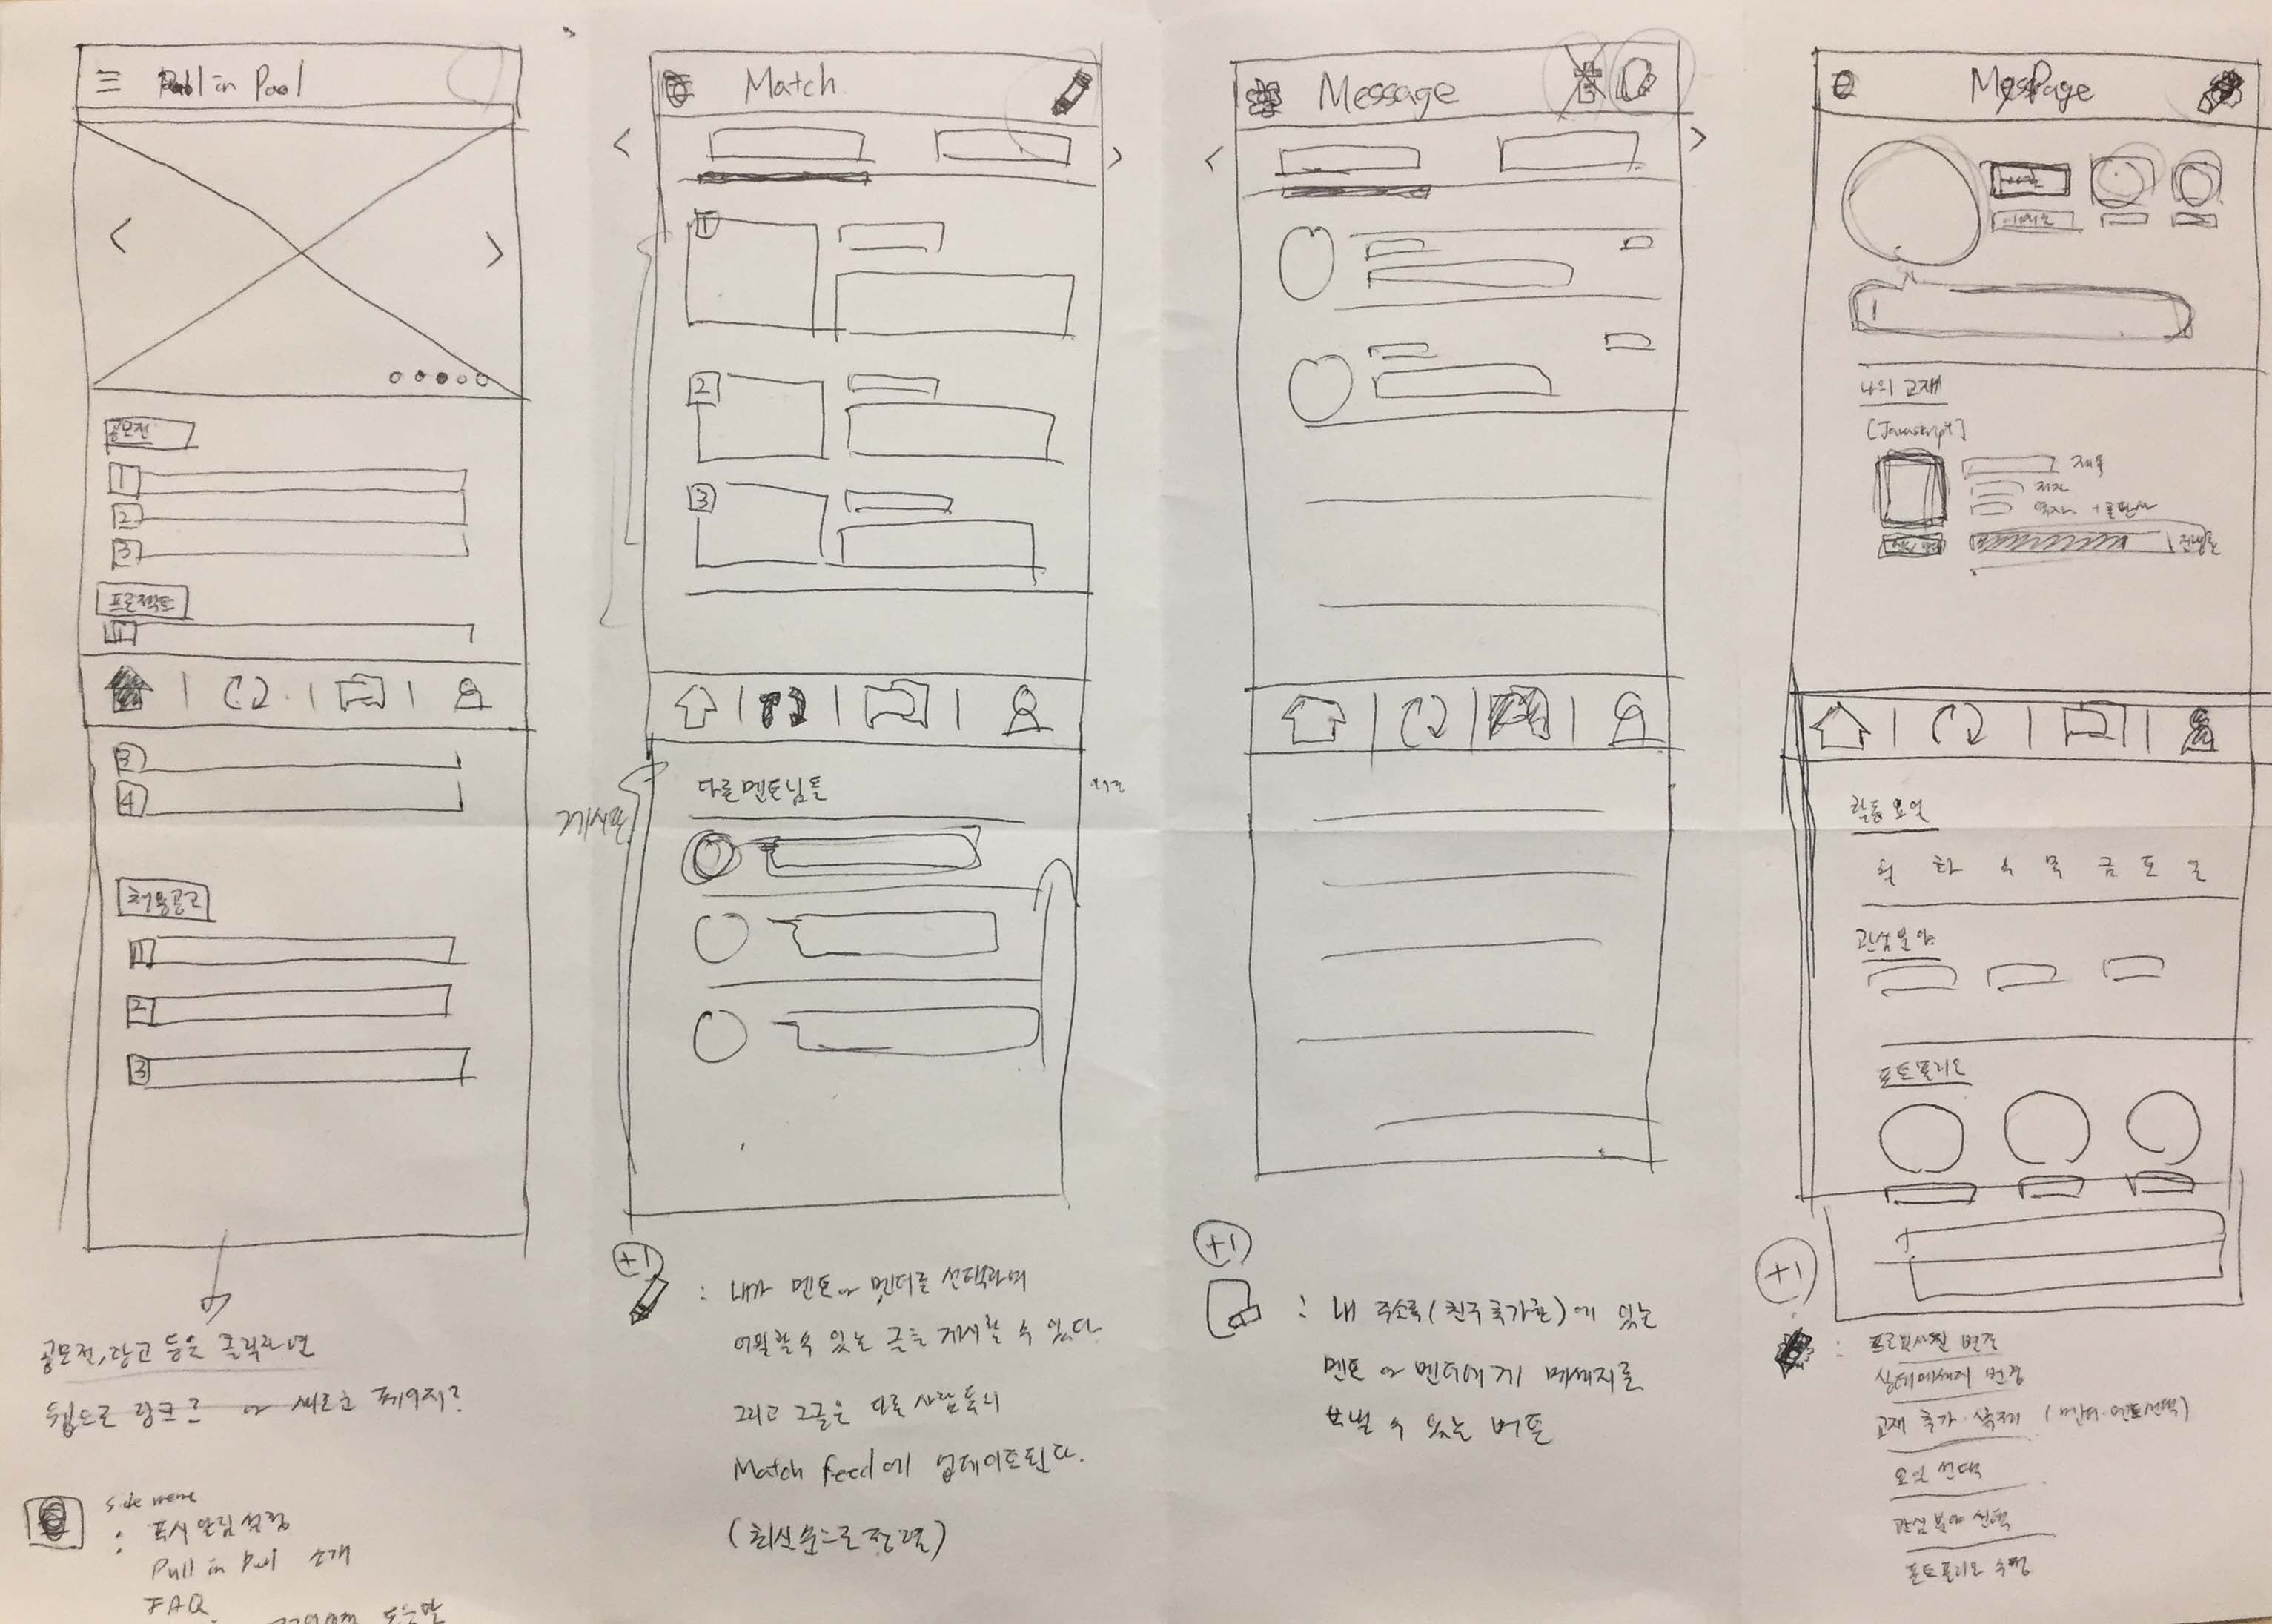 Pull in Pool
공모전
1
2
3
프로젝트
1
3
4
채용공고
1
2
3
공모전, 광고 등을 클릭하면
웹으로 링크? or 새로운 페이지?
side menu
: 푸시 알림 설정
Pull in Pool 소개
FAQ
도움말
Match
1
2
3
게시판
다른 멘토님들
+1
: 내가 멘토 or 멘티를 선택하여
어필할 수 있는 글을 게시할 수 있다
그리고 그 글은 다른 사람들의
Match feed에 업데이트된다.
(최신순으로 정렬)
Message
+1
: 내 주소록(친구추가한)에 있는
멘토 or 멘티에게 메세지를
보낼 수 있는 버튼
MyPage
나의 교재
[Javascript]
제목
저자
역자 + 출판사
진행률
활동요일
월 화 수 목 금 토 일
관심분야
포트폴리오
+1
: 프로필사진 변경
상태메세지 변경
교재 추가·삭제 (멘티·멘토선택)
요일 선택
관심 분야 선택
포트폴리오 수정